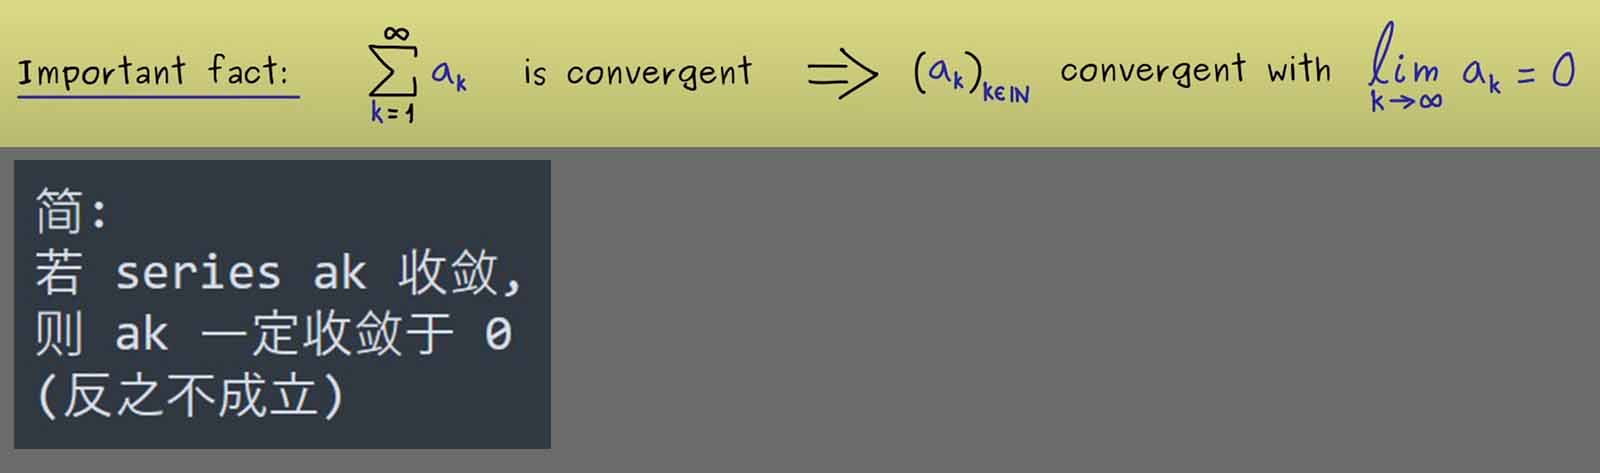 Important fact: ∞∑k=1 ak is convergent ⇒ (ak)k∈ℕ convergent with lim k→∞ ak = 0
简:
若 series ak 收敛,
则 ak 一定收敛于 0
(反之不成立)